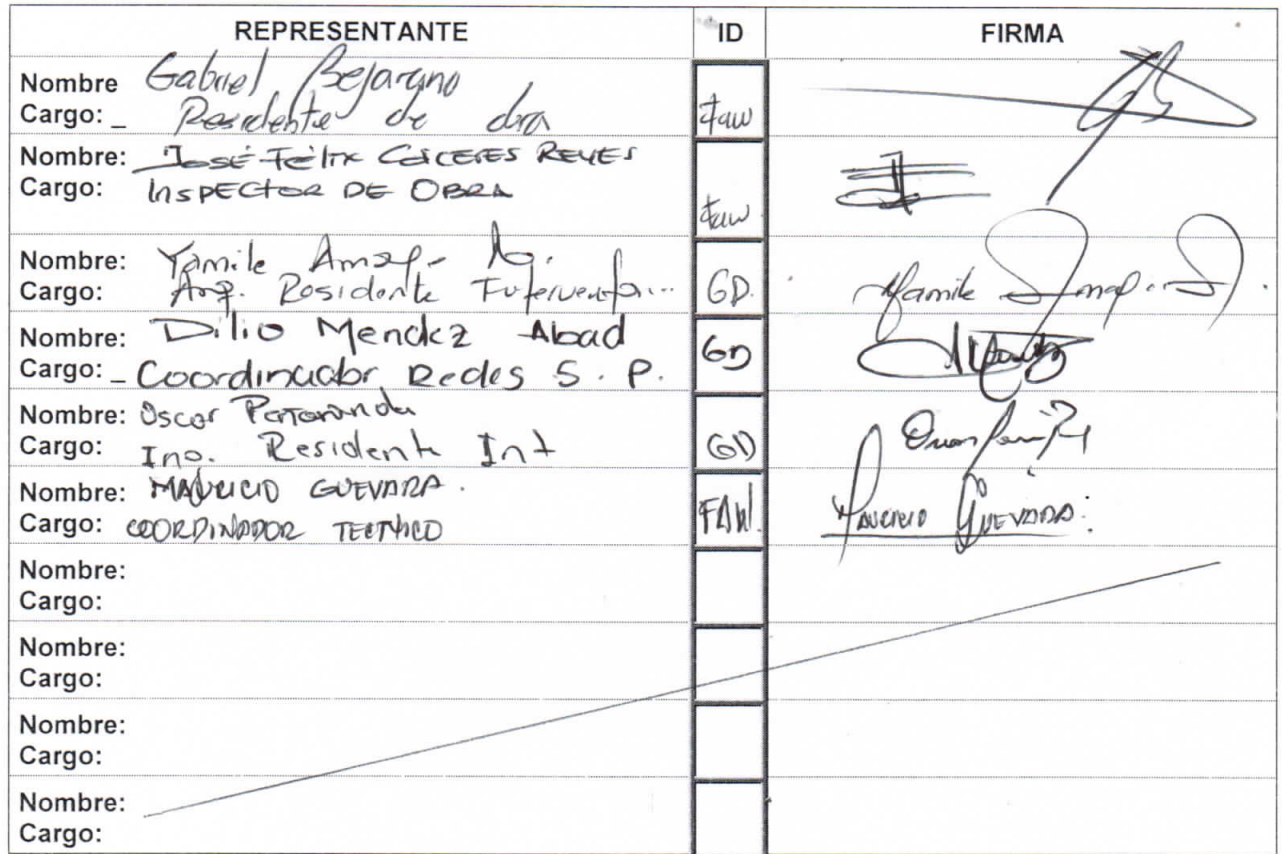 REPRESENTANTE ID FIRMA
Nombre Gabriel Bejarano
Cargo: _ Residente de obra Faw
Nombre: José Félix Cáceres Reyes
Cargo: INSPECTOR DE OBRA Faw.
Nombre: Yamile
Cargo: Arq. Residente GD.
Nombre: Dilio Mendez Abad
Cargo: _ Coordinador Redes S. P. GD
Nombre: Oscar
Cargo: Ing. Residente Int GD
Nombre: MAURICIO GUEVARA.
Cargo: COORDINADOR TECNICO FAW. MAURICIO GUEVARA.
Nombre:
Cargo:
Nombre:
Cargo:
Nombre:
Cargo:
Nombre:
Cargo: